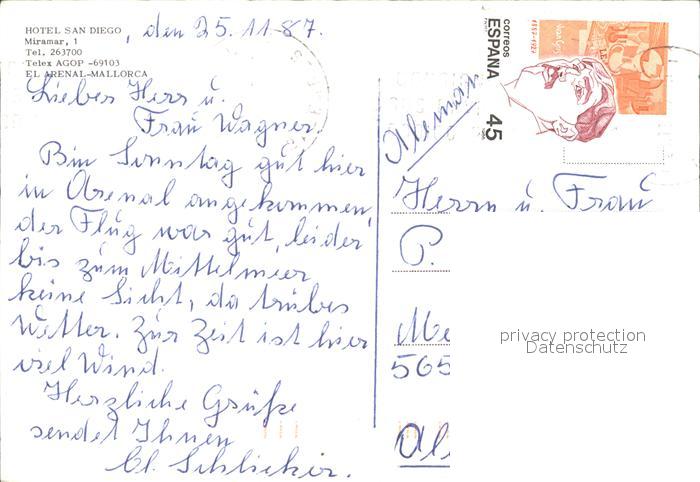 HOTEL SAN DIEGO
Miramar, 1
Tel. 263700
Telex AGOP -69103
EL ARENAL-MALLORCA
, den 25.11.87.
Liebes Herr u.
Frau Wagner.
Bin Sonntag gut hier
in Arenal angekommen,
der Flug war gut, leider
bis zum Mittelmeer
keine Sicht, da trübes
Wetter. Zur Zeit ist hier
viel Wind.
Herzliche Grüße
sendet Ihnen
correos
ESPAÑA 45
1887-1987
Aleman
Herrn u. Frau
P.
Me
565
Al
privacy protection
Datenschutz